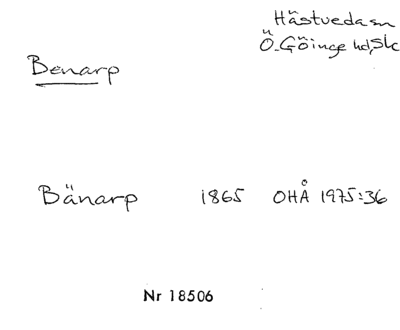 Hästveda sn
Ö. Göinge hd, Sk
Benarp
Bänarp 1865 OHÅ 1975:36
Nr 18506